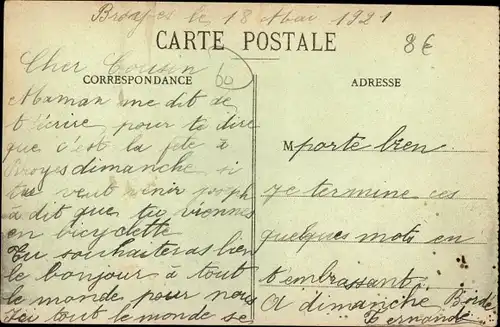 Broyes le 18 Mai 1921
8€
CARTE POSTALE
CORRESPONDANCE
60
ADRESSE
Cher Cousin
Maman me dit de
t'écrire pour te dire
que c'est la fête à
Broyes dimanche si
tu veut venir joseph
a dit que tu viennes
en bicyclette
Tu souhaiteras bien
le bonjour à tout
le monde pour nous
Ici tout le monde se
M porte bien
Je termine ces
quelques mots en
t'embrassant
A dimanche
Fernande